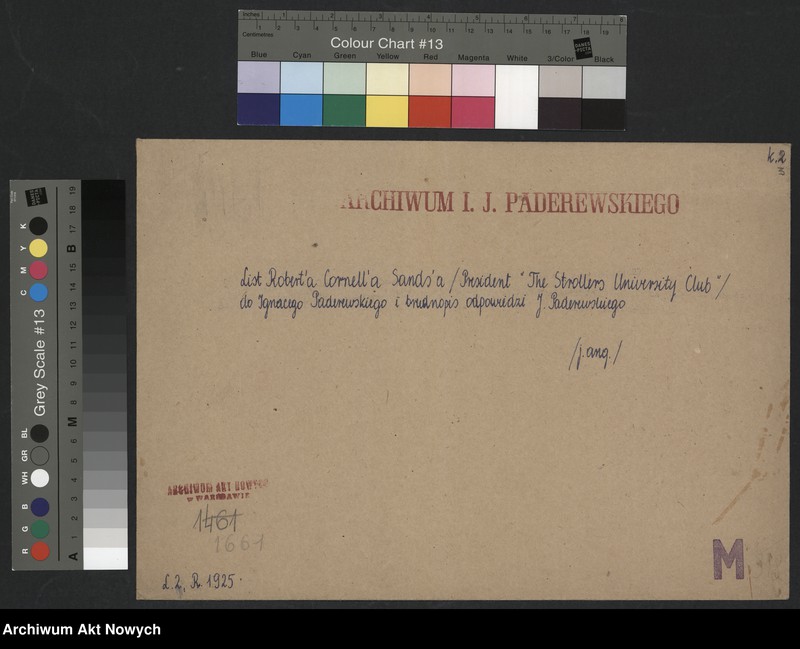 inches 1 2 3 4 5 6 7 8
Centimetres 1 2 3 4 5 6 7 8 9 10 11 12 13 14 15 16 17 18 19
Colour Chart #13
Blue Cyan Green Yellow Red Magenta White 3/Color Black
k.2
ARCHIWUM I. J. PADEREWSKIEGO
List Robert'a Cornell'a Sands'a /President "The Strollers University Club"/
do Ignacego Paderewskiego i brudnopis odpowiedzi J. Paderewskiego
/j.ang./
ARCHIWUM AKT NOWYCH
W WARSZAWIE
1461
1661
L.2, R. 1925.
M
Grey Scale #13
R G B WH GR BL C M Y K
A 1 2 3 4 5 6 M 8 9 10 11 12 13 14 15 B 17 18 19
Archiwum Akt Nowych